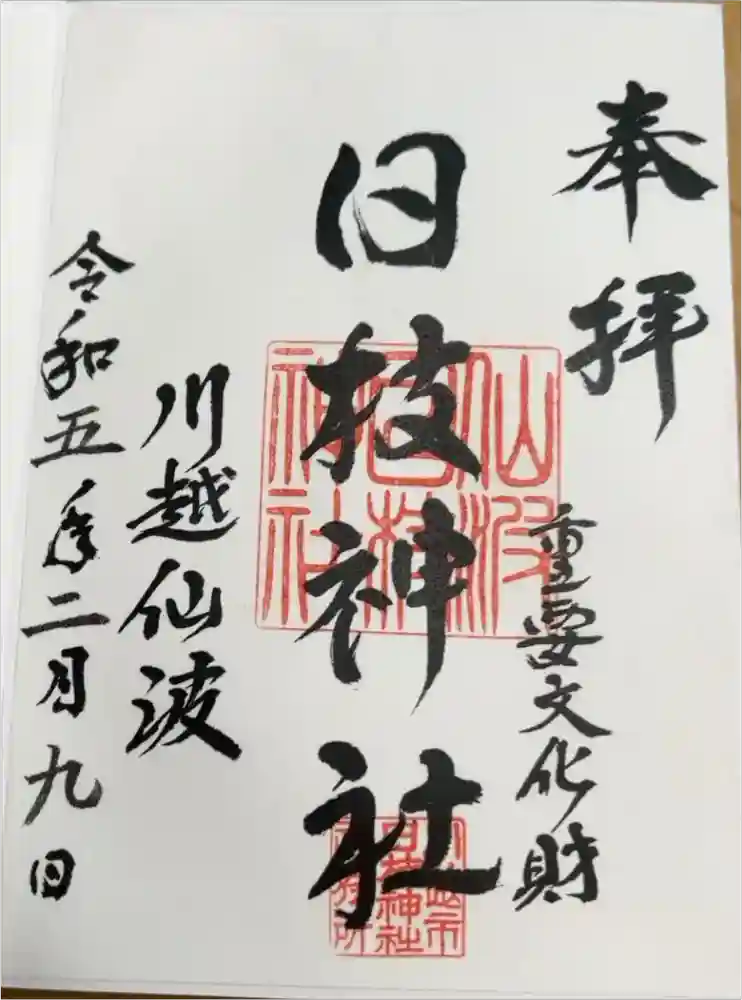 奉拝
重要文化財
日枝神社
川越仙波
令和五年二月九日
仙波
日枝
神社
川越市
日枝神社
社務所